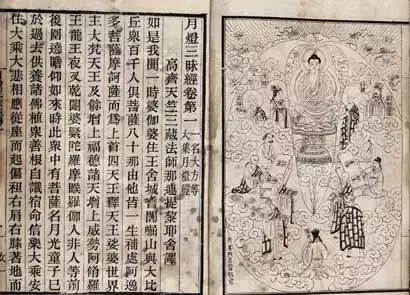 月燈三昧經卷第一
一名大方等
大集月燈經
高齊天竺三藏法師那連提黎耶舍譯
如是我聞一時婆伽婆住王舍城耆闍崛山與大比
丘眾百千人俱菩薩八十那由他皆一生補處阿逸
多菩薩摩訶薩而為上首四天王釋天王娑婆世界
主大梵天王及餘增上福德諸天增上威勢阿脩羅
王龍王夜叉乾闥婆緊陀羅摩睺羅伽人非人等前
後圍遶瞻仰如來時此眾中有菩薩名月光童子已
於過去供養諸佛植眾善根自識宿命信樂大乘安
住大乘大悲相應從座而起偏袒右肩右膝著地而